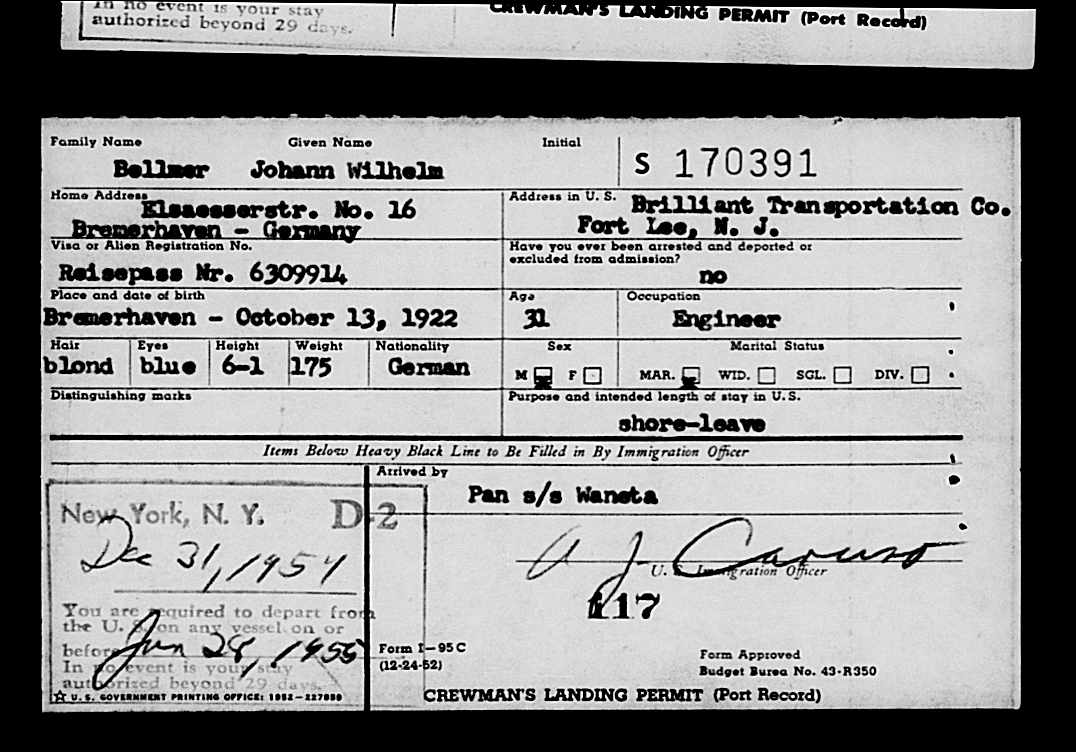 In no event is your stay
authorized beyond 29 days.
CREWMAN'S LANDING PERMIT (Port Record)
Family Name Given Name Initial
Bellmer Johann Wilhelm
S 170391
Home Address
Elsaesserstr. No. 16
Bremerhaven - Germany
Address in U. S. Brilliant Transportation Co.
Fort Lee, N. J.
Visa or Alien Registration No.
Reisepass Nr. 6309914
Have you ever been arrested and deported or
excluded from admission?
no
Place and date of birth
Bremerhaven - October 13, 1922
Age
31
Occupation
Engineer
Hair Eyes Height Weight Nationality
blond blue 6-1 175 German
Sex Marital Status
M F MAR. WID. SGL. DIV.
Distinguishing marks
Purpose and intended length of stay in U.S.
shore-leave
Items Below Heavy Black Line to Be Filled in By Immigration Officer
Arrived by
Pan s/s Waneta
New York, N. Y. D-2
Dec 31, 1954
A J Caruso
U. S. Immigration Officer
117
You are required to depart from
the U. S. on any vessel on or
before Jan 28, 1955
In no event is your stay
authorized beyond 29 days.
Form I-95C
(12-24-52)
Form Approved
Budget Bureau No. 43-R350
U. S. GOVERNMENT PRINTING OFFICE: 1952-227080
CREWMAN'S LANDING PERMIT (Port Record)